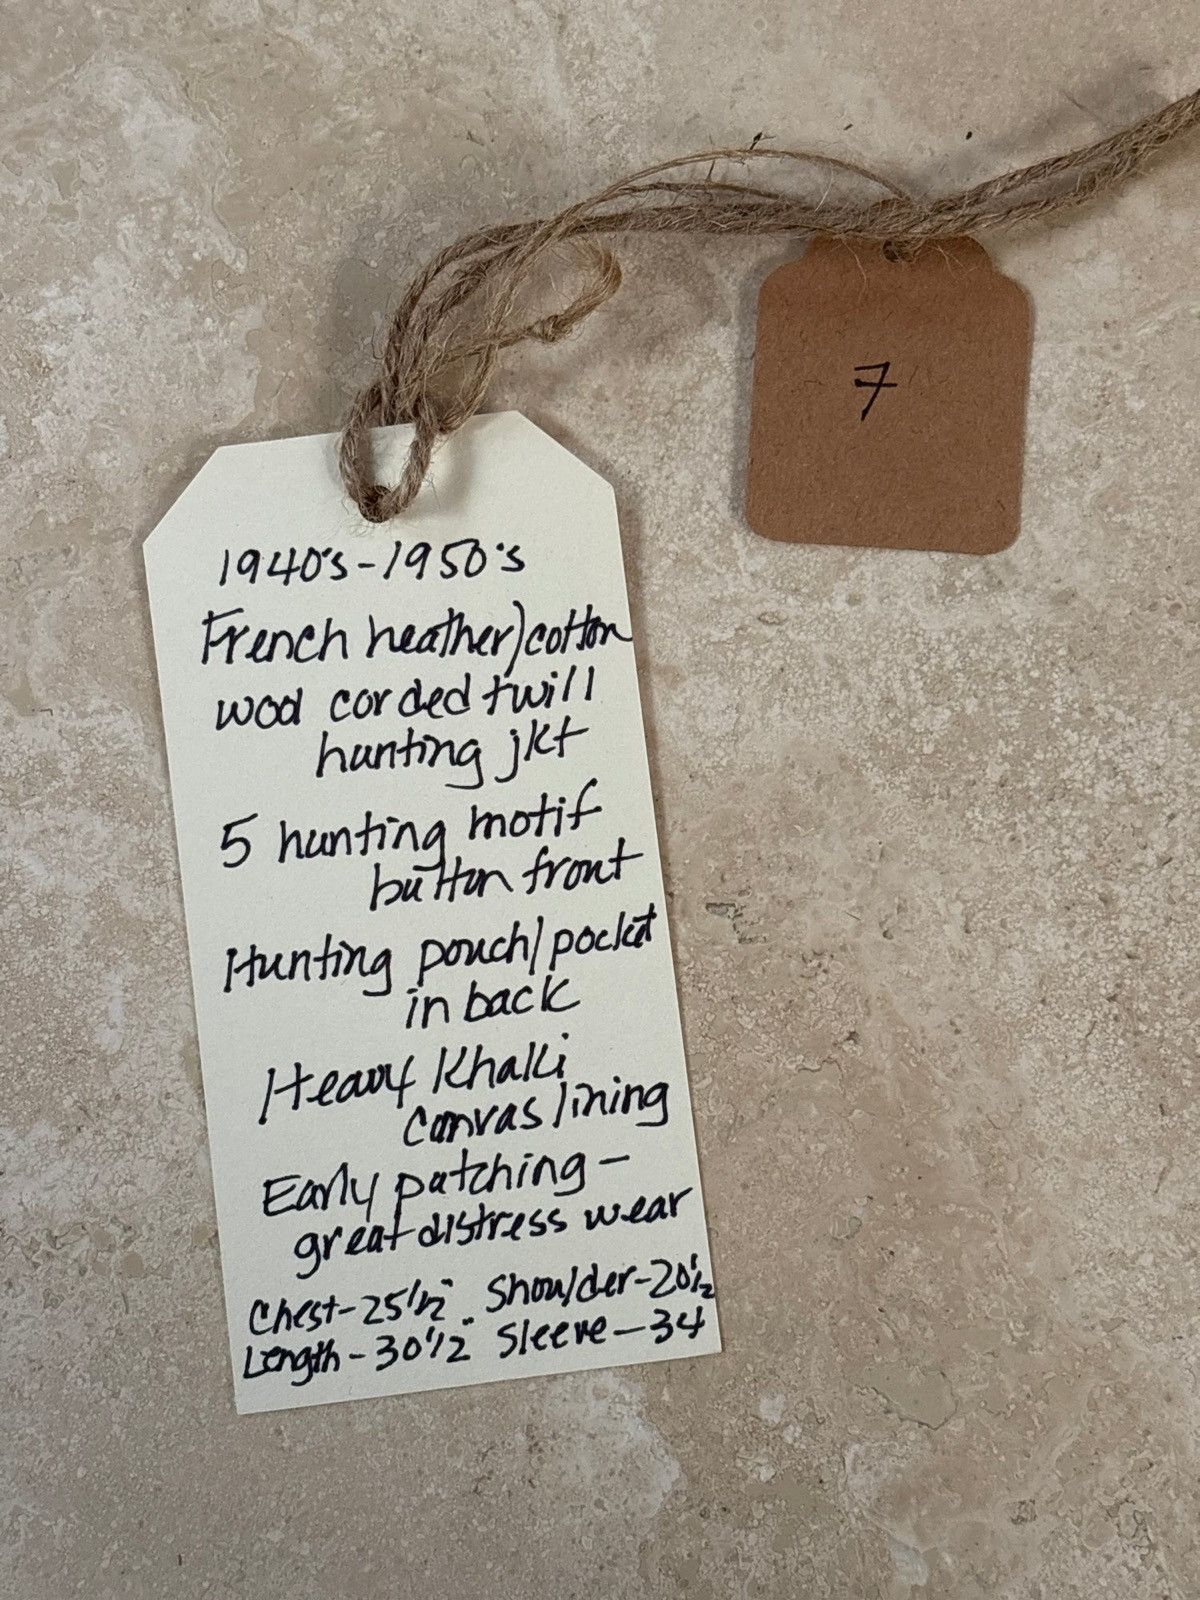 7
1940's-1950's
French heather/cotton
wool corded twill
hunting jkt
5 hunting motif
button front
Hunting pouch/pocket
in back
Heavy Khaki
canvas lining
Early patching -
great distress wear
Chest-25 1/2" Shoulder-20 1/2
Length-30 1/2" Sleeve-34